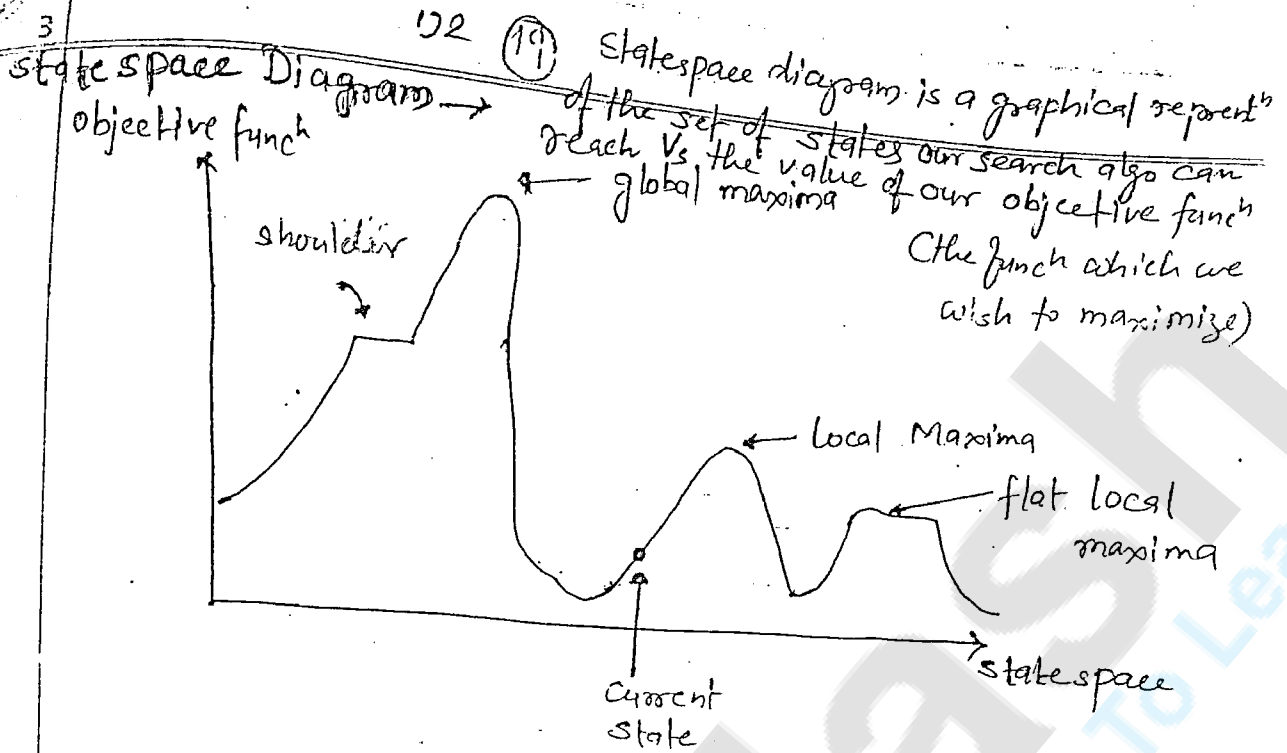 3
192
19
statespace Diagram →
Statespace diagram is a graphical represntⁿ
of the set of states our search algo can
reach Vs the value of our objective funcⁿ
(the funcⁿ which we
wish to maximize)
objective funcⁿ
global maxima
shoulder
Local Maxima
flat local
maxima
statespace
Current
State
To Lea